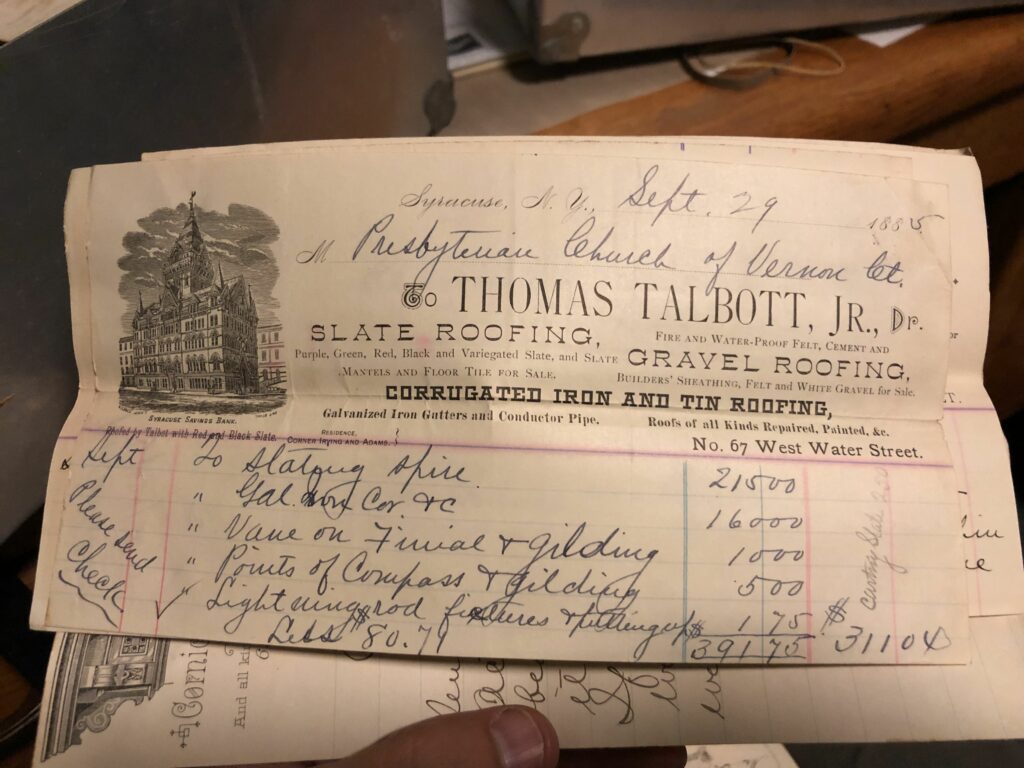 Syracuse, N. Y., Sept. 29 1885
M Presbyterian Church of Vernon Ct.
To THOMAS TALBOTT, JR., Dr.
SLATE ROOFING,
Purple, Green, Red, Black and Variegated Slate, and Slate
Mantels and Floor Tile for Sale.
Fire and Water-Proof Felt, Cement and
GRAVEL ROOFING,
Builders' Sheathing, Felt and White Gravel for Sale.
CORRUGATED IRON AND TIN ROOFING,
Galvanized Iron Gutters and Conductor Pipe.
Roofs of all Kinds Repaired, Painted, &c.
Syracuse Savings Bank.
Roofed by Talbot with Red and Black Slate.
Residence,
Corner Irving and Adams.
No. 67 West Water Street.
Sept To Slating spire 21500
" Gal. Iron Cor. &c 16000
" Vane on Finial & gilding 1000
" Points of Compass & gilding 500
" Lightning rod fixtures & putting up $ 175
Less $80.71 $39175 $31104
Please send
Check
Slate
And all ki